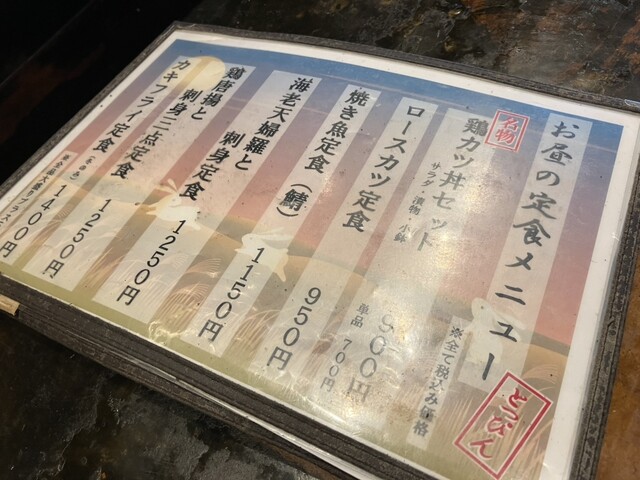 お昼の定食メニュー
※全て税込み価格
とっぴん
名物
鶏カツ丼セット
サラダ・漬物・小鉢
900円
単品 700円
ロースカツ定食
950円
焼き魚定食(鯖)
1150円
海老天婦羅と
刺身定食
1250円
鶏唐揚と
刺身三点定食
1250円
カキフライ定食
1400円